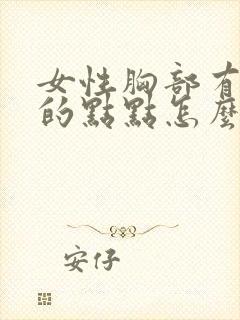 女性胸部有
的點點怎麼
安仔